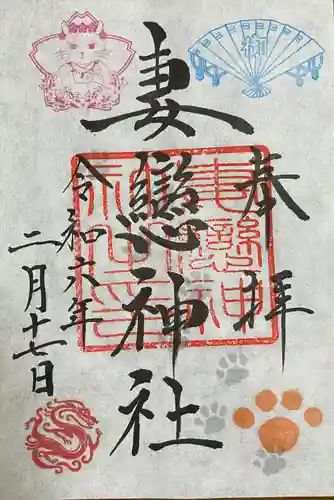 奉拝
妻戀神社
令和六年
二月十七日